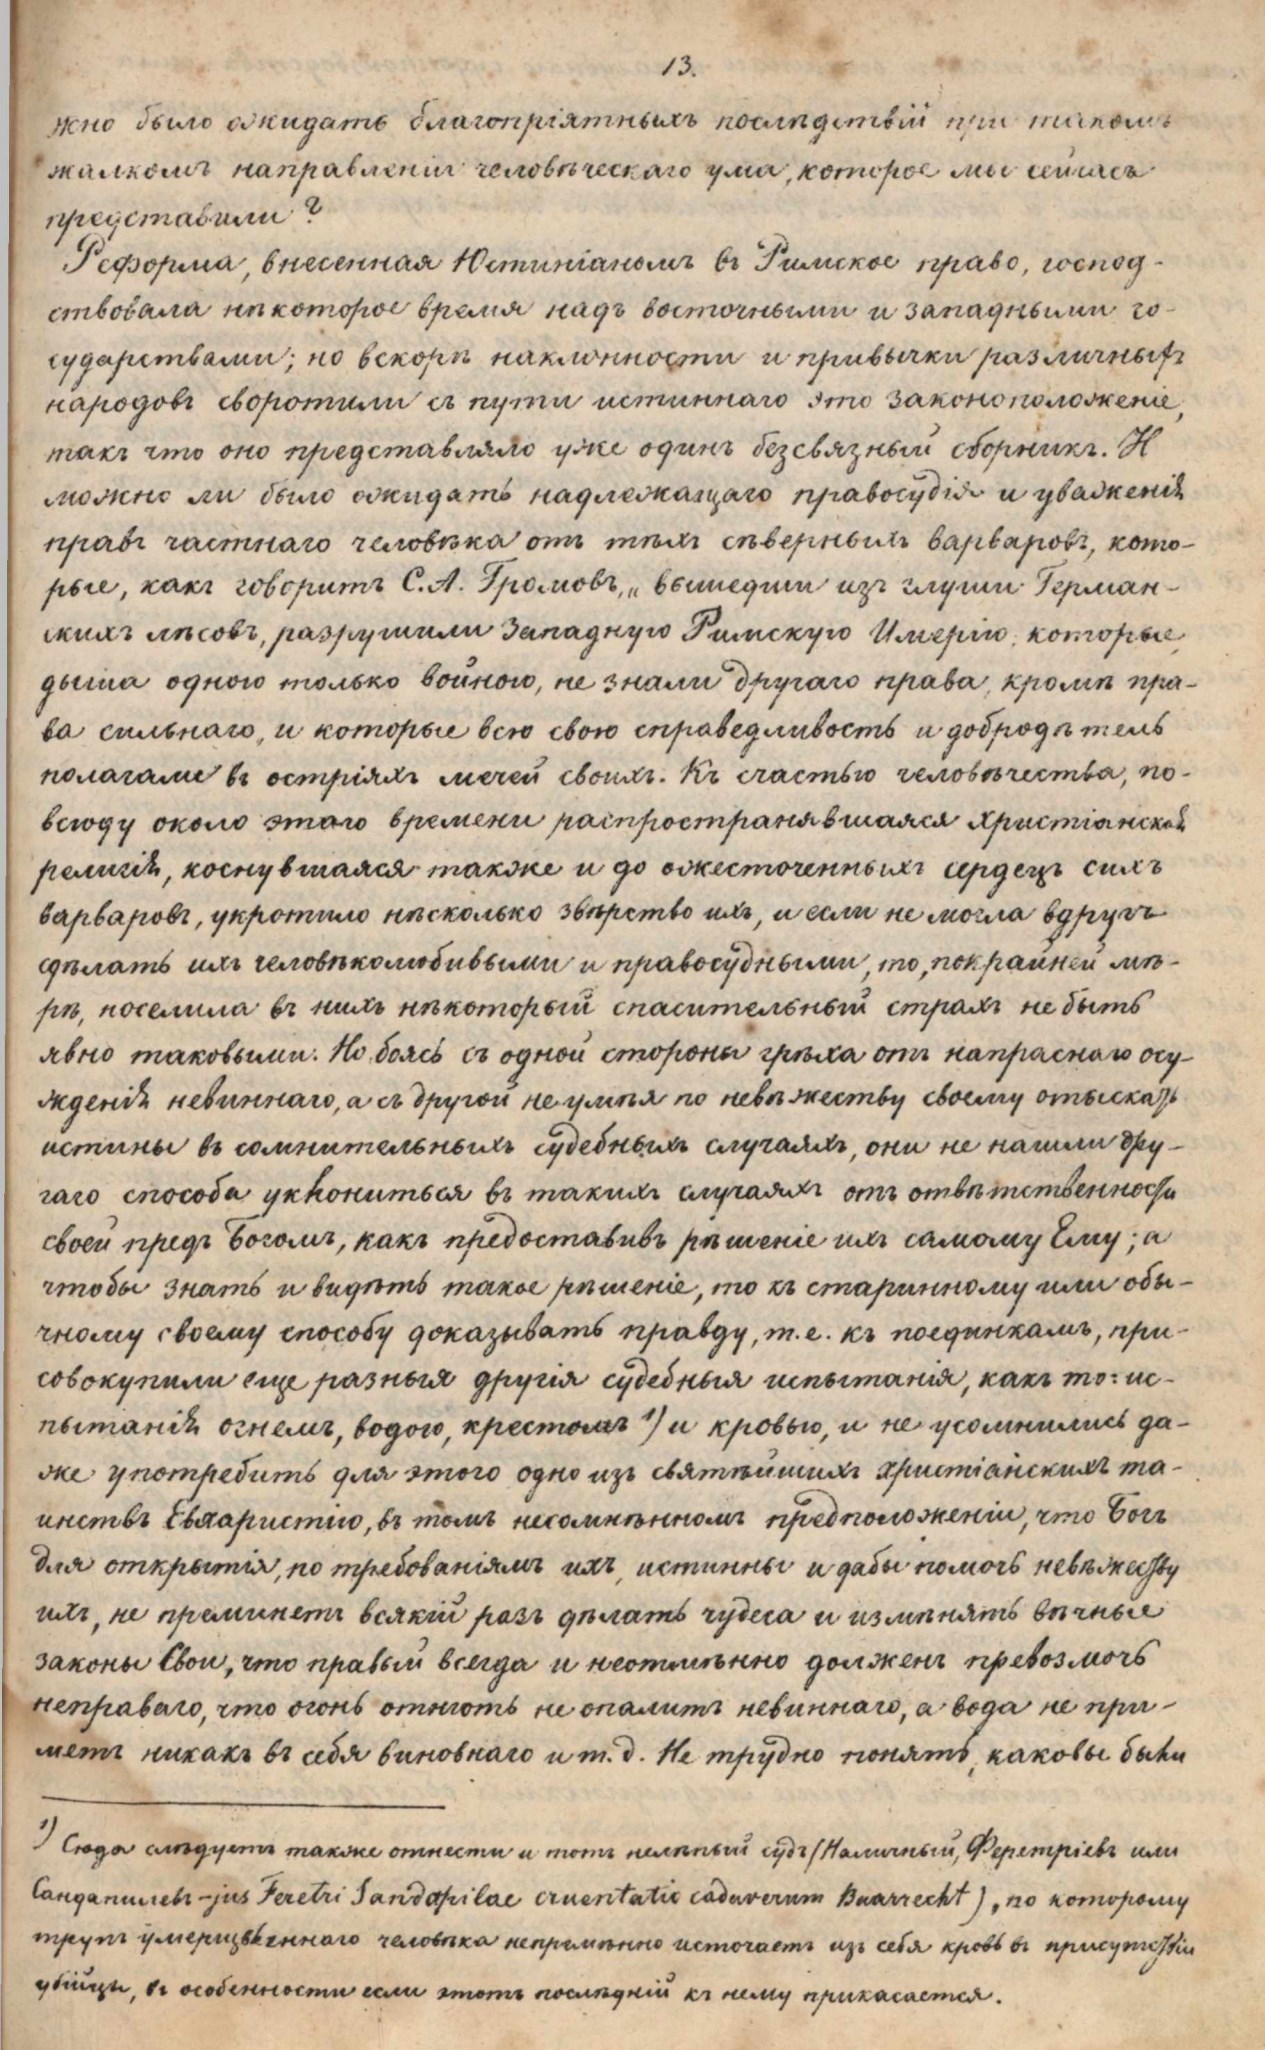 13.
жно было ожидать благопріятныхъ послѣдствій при такомъ
жалкомъ направленіи человѣческаго ума, которое мы сейчасъ
представили?
Реформа, внесенная Юстиніаномъ въ Римское право, господ-
ствовала нѣкоторое время надъ восточными и западными го-
сударствами; но вскорѣ наклонности и привычки различныхъ
народовъ своротили съ пути истиннаго это законоположеніе,
такъ что оно представляло уже одинъ безсвязный сборникъ. И
можно ли было ожидать надлежащаго правосудія и уваженія
правъ частнаго человѣка отъ тѣхъ сѣверныхъ варваровъ, кото-
рые, какъ говоритъ С.А. Громовъ, „ вышедши изъ глуши Герман-
скихъ лѣсовъ, разрушили Западную Римскую Имерію, которые,
дыша одною только войною, не знали другаго права, кромѣ пра-
ва сильнаго, и которые всю свою справедливость и добродѣтель
полагаме въ остріяхъ мечей своихъ. Къ счастью человѣчества, по-
всюду около этаго времени распространявшаяся христіанская
религія, коснувшаяся также и до ожесточенныхъ сердецъ сихъ
варваровъ, укротило нѣсколько звѣрство ихъ, и если не могла вдругъ
сдѣлать ихъ человѣколюбивыми и правосудными, то, покрайней мѣ-
рѣ, поселила въ нихъ нѣкоторый спасительный страхъ не быть
явно таковыми. Но боясь съ одной стороны грѣха отъ напраснаго осу-
жденія невиннаго, а съ другой не умѣя по невѣжеству своему отыскать
истины въ сомнительныхъ судебныхъ случаяхъ, они не нашли дру-
гаго способа уклониться въ такихъ случаяхъ отъ отвѣтственности
своей предъ Богомъ, какъ предоставивъ рѣшеніе ихъ самому Ему; а
чтобы знать и видѣть такое рѣшеніе, то къ старинному или обы-
чному своему способу доказывать правду, т.е. къ поединкамъ, при-
совокупили еще разныя другія судебныя испытанія, какъ то: ис-
пытанія огнемъ, водою, крестомъ ¹) и кровью, и не усомнились да-
же употребить для этого одно изъ святѣйшихъ христіанскихъ та-
инствъ Евхаристію, въ томъ несомнѣнномъ предположеніи, что Богъ
для открытія, по требованіямъ ихъ, истинны и дабы помочь невѣжеству
ихъ, не преминетъ всякій разъ дѣлать чудеса и измѣнять вѣчные
законы Свои, что правый всегда и неотмѣнно долженъ превозмочь
неправаго, что огонь отнютъ не опалитъ невиннаго, а вода не при-
метъ никакъ въ себя виновнаго и т.д. Не трудно понять, каковы были
¹) Сюда слѣдуетъ также отнести и тотъ нелѣпый судъ (Наличный, Феретріевъ или
Сандапилевъ - jus Feretri Sandapilae cruentatio cadaverum Baarrecht), по которому
трупъ умерщвленнаго человѣка непремѣнно источаетъ изъ себя кровь въ присутствіи
убійцы, въ особенности если этотъ послѣдній къ нему прикасается.